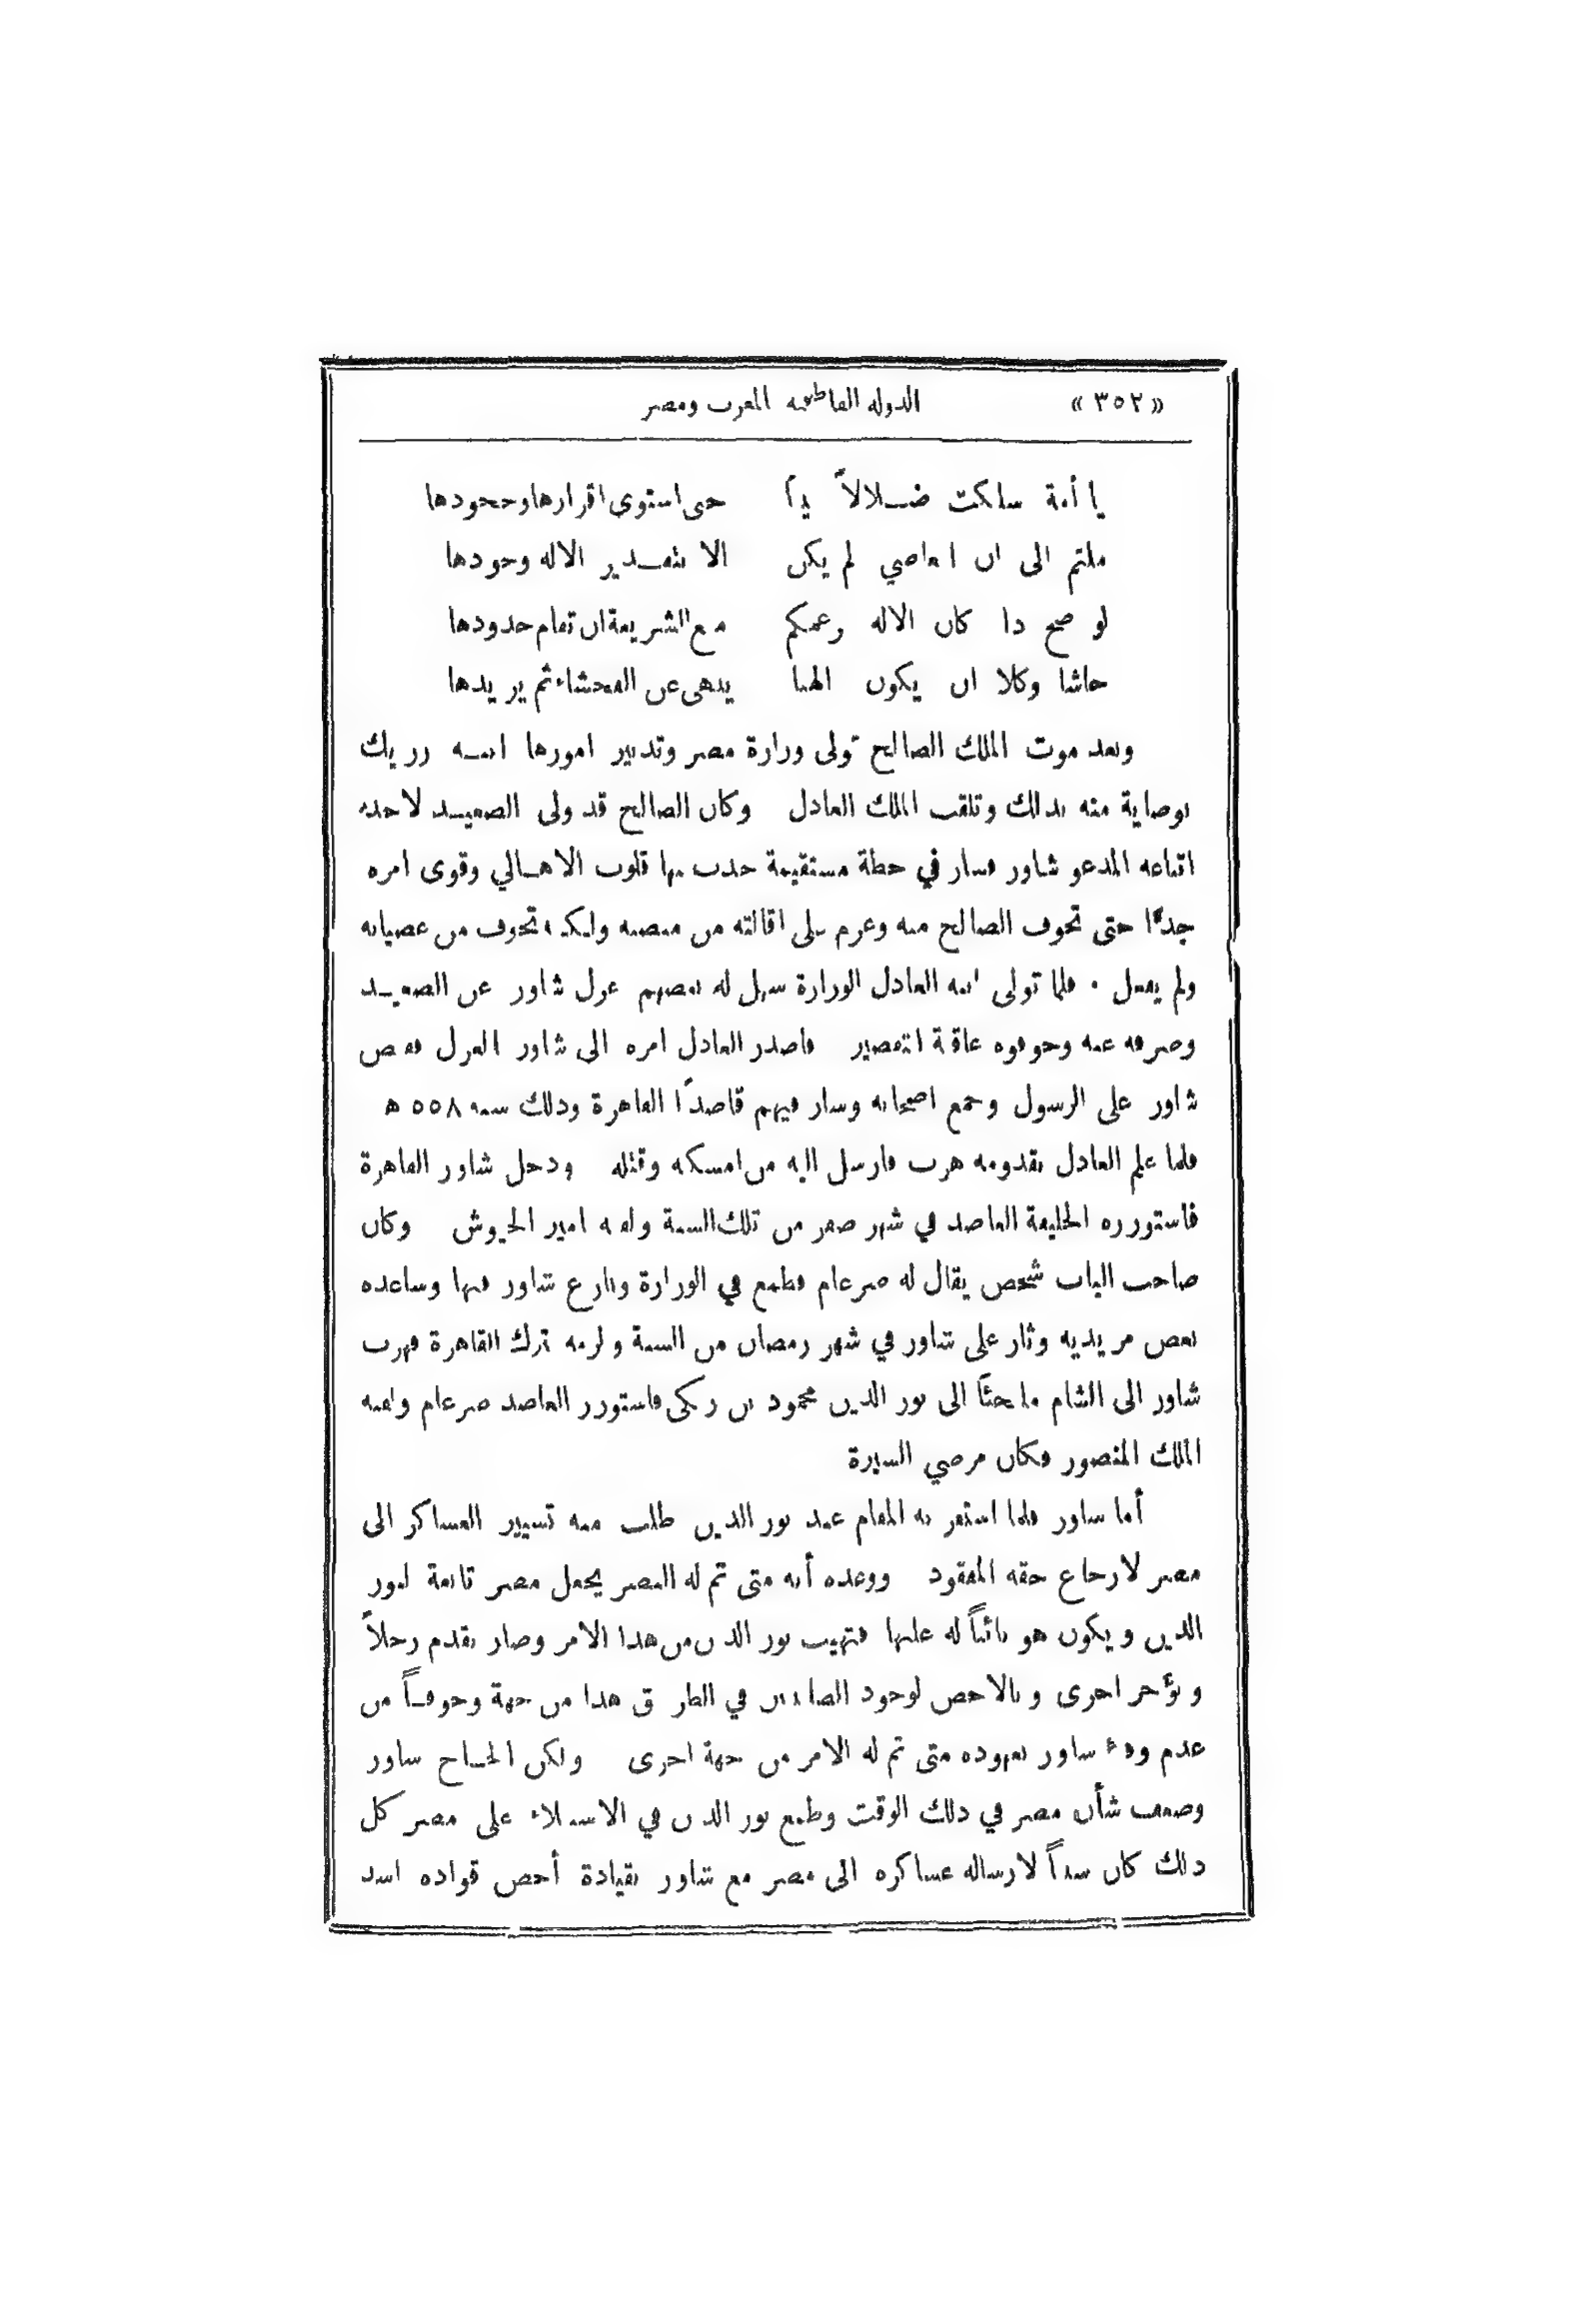 «٣٥٢» الدولة الفاطمية بالمغرب ومصر
يا أمة سلكت ضلالاً بيناً حتى استوى اقرارها وجحودها
ملتم الى ان المعاصي لم يكن الا بتقدير الاله وجودها
لو صح ذا كان الاله بزعمكم منع الشريعة ان تقام حدودها
حاشا وكلا ان يكون الهنا ينهى عن الفحشاء ثم يريدها
وبعد موت الملك الصالح تولى وزارة مصر وتدبير امورها ابنه رزيك
بوصاية منه بذلك وتلقب الملك العادل وكان الصالح قد ولى الصعيد لاحد
اتباعه المدعو شاور فسار في خطة مستقيمة جذب بها قلوب الاهالي وقوى امره
جدًّا حتى تخوف الصالح منه وعزم على اقالته من منصبه ولكنه تخوف من عصيانه
ولم يفعل . فلما تولى ابنه العادل الوزارة سهل له بعضهم عزل شاور عن الصعيد
وصرفه عنه وخوفوه عاقبة التقصير فاصدر العادل امره الى شاور بالعزل فقبض
شاور على الرسول وجمع اصحابه وسار فيهم قاصدًا القاهرة وذلك سنة ٥٥٨ ه
فلما علم العادل بقدومه هرب فارسل اليه من امسكه وقتله ودخل شاور القاهرة
فاستوزره الخليفة العاضد في شهر صفر من تلك السنة ولقبه امير الجيوش وكان
صاحب الباب شخص يقال له ضرغام فطمع في الوزارة ونازع شاور فيها وساعده
بعض مريديه وثار على شاور في شهر رمضان من السنة ولزمه ترك القاهرة فهرب
شاور الى الشام ملتجئًا الى نور الدين محمود بن زنكي فاستوزر العاضد ضرغام ولقبه
الملك المنصور فكان مرضي السيرة
أما شاور فلما استقر به المقام عند نور الدين طلب منه تسيير العساكر الى
مصر لارجاع حقه المفقود ووعده أنه متى تم له النصر يجعل مصر تابعة لنور
الدين ويكون هو نائباً له عليها فتهيب نور الدين من هذا الامر وصار يقدم رجلاً
ويؤخر اخرى وبالاخص لوجود الصليبيين في الطريق هذا من جهة وخوفاً من
عدم وفاء شاور بعهوده متى تم له الامر من جهة اخرى ولكن الحاح شاور
وضعف شأن مصر في ذلك الوقت وطمع نور الدين في الاستيلاء على مصر كل
ذلك كان سبباً لارساله عساكره الى مصر مع شاور بقيادة أخص قواده اسد